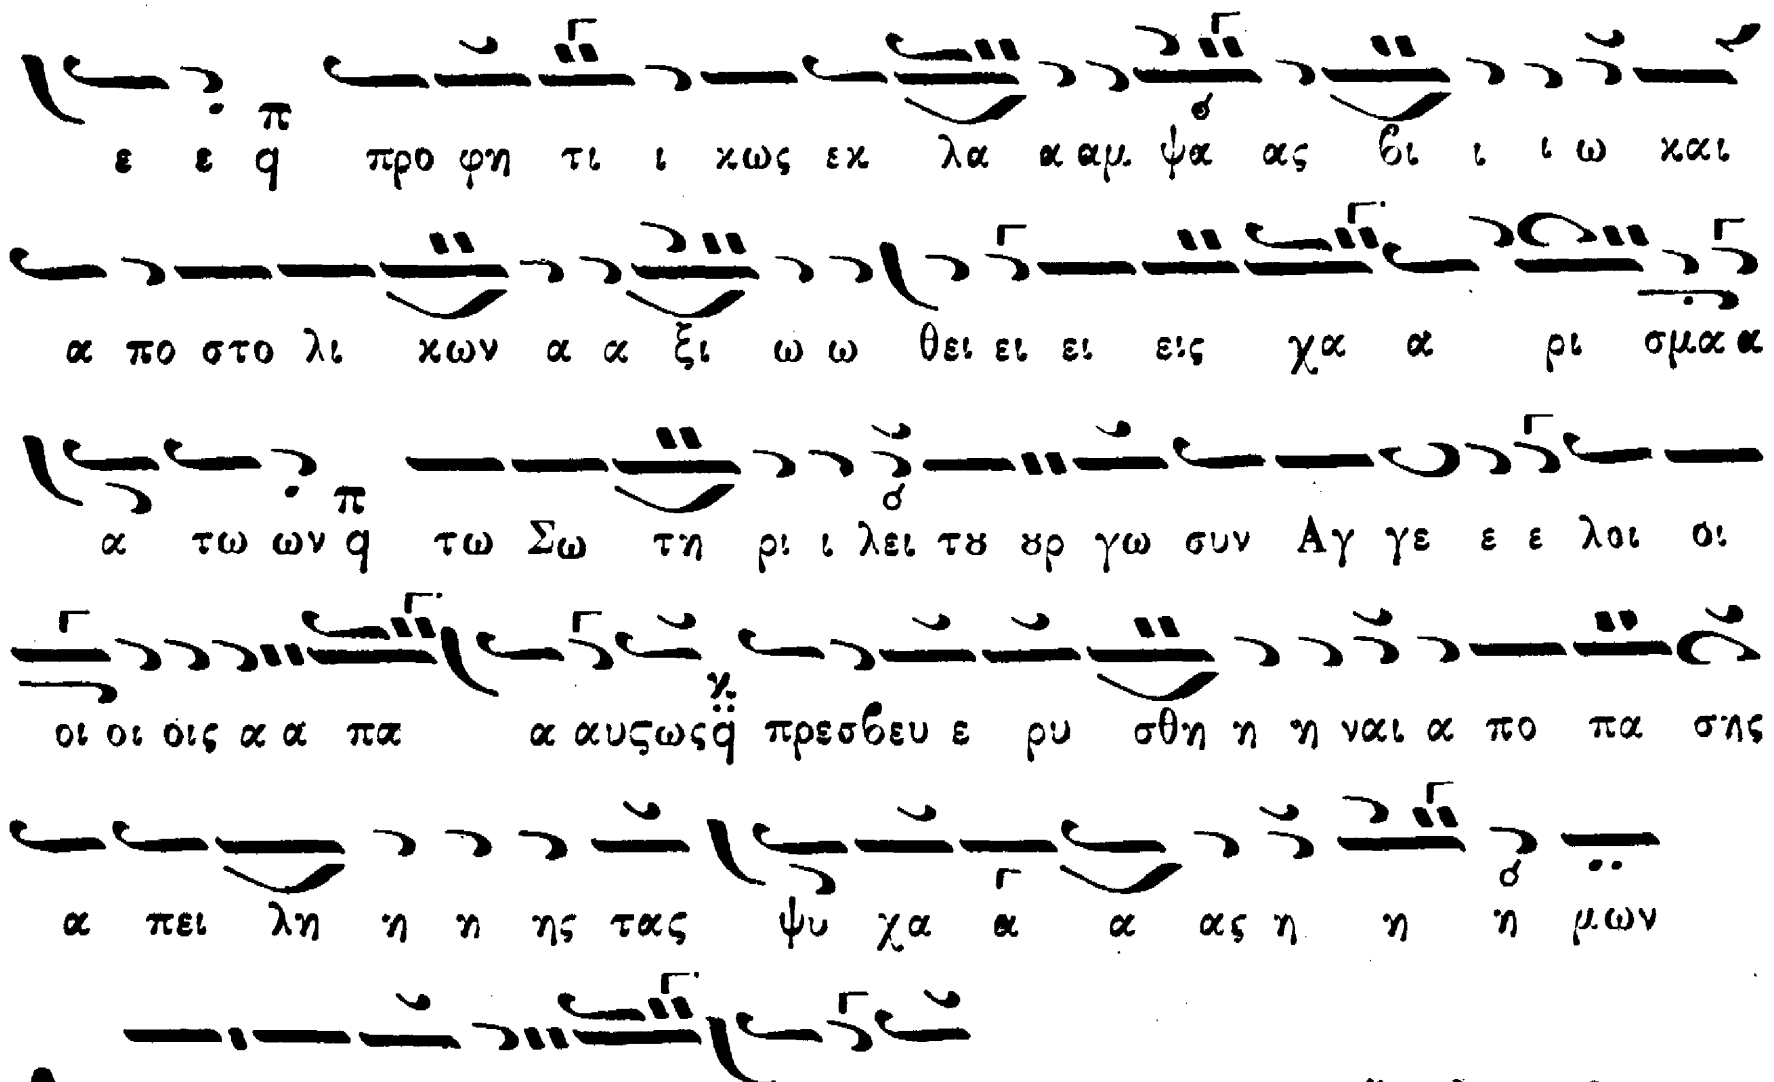 ε ε π q προ φη τι ι κως εκ λα α αμ ψα ας βι ι ι ω και
α πο στο λι κων α α ξι ω ω θει ει ει εις χα α ρι σμα α
α τω ων π q τω Σω τη ρι ι λει τȣ ȣρ γω συν Αγ γε ε ε λοι οι
οι οι οις α α πα α αυςως q πρεσβευ ε ρυ σθη η η ναι α πο πα σης
α πει λη η η ης τας ψυ χα α α ας η η η μων